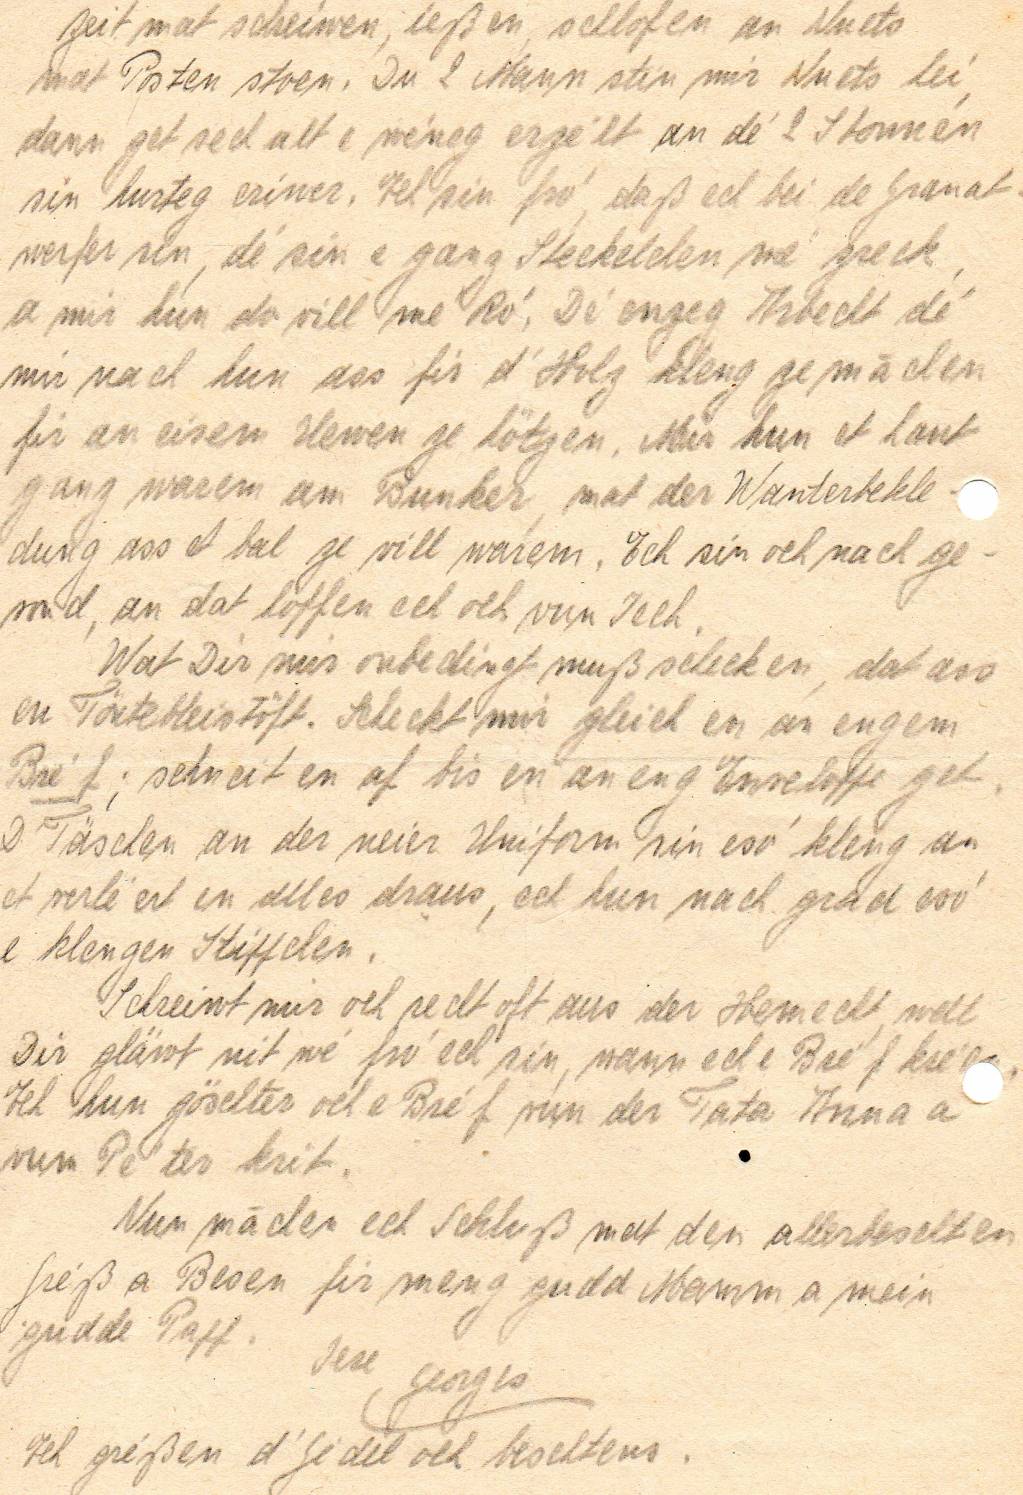 Zeit mat schreiwen, ießen, schlofen an Nuets
mat Posten stoen. Du 2 Mann stin mir Nuets hei,
dann get sech alt e wéneg erzélt an dé 2 Stonnen
sin hurteg eriwer. Ech sin fró, daß ech bei de Granat-
werfer sin, dé sin e ganz Steckelchen mé zreck,
a mir hun do vill mé Ró. Dé enzeg Arbecht dé
mir nach hun ass fir d'Holz kleng ze mächen
fir an eisem Uewen ze hötzen. Mir hun et haut
ganz warem am Bunker, mat der Wanterbekle-
dung ass et bal ze vill warem. Ech sin och nach ge-
sond, an dat hoffen ech och vun Iech.
Wat Dir mir onbedingt muß schecken, dat ass
en Töntebleistöft. Scheckt mir gleich en an engem
Bréf; schneit en af bis en an eng Enveloppe get.
D'Täschen an der neier Uniform sin esó kleng an
et verléert en alles draus, ech hun nach grad esó
e klengen Stiffchen.
Schreiwt mir och recht oft aus der Hemecht, well
Dir gläwt nit wé fró ech sin, wann ech e Bréf kréen.
Ech hun göschter och e Bréf vun der Tata Anna a
vum Péter krit.
Nun mächen ech Schluß mat den allerbeschten
Gréß a Besen fir meng gudd Mamm a mein
gudde Papp.
Iere Georges
Ech gréßen d'Gédel och beschtens.